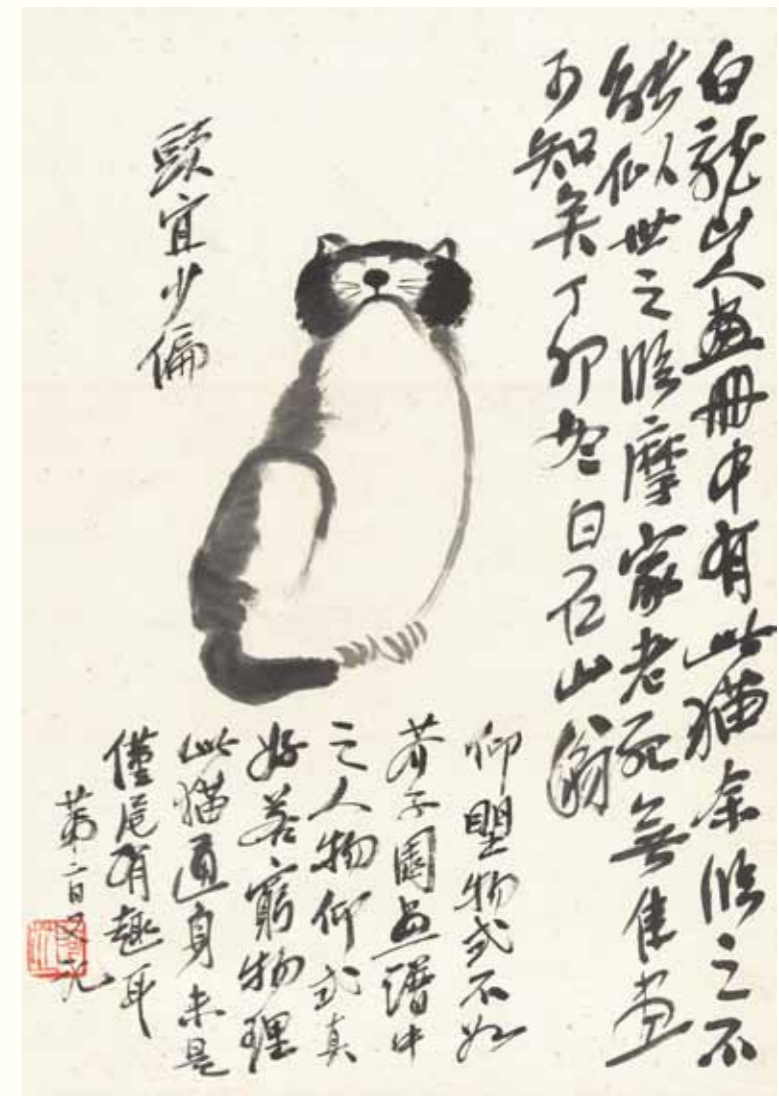 白龍山人畫冊中有此猫余臨之不
能似世之臨摩家老死無佳畫
可知矣丁卯冬白石山翁
頭宜少偏
仰望物式不如
芥子園畫譜中
之人物仰式真
好若窮物理
此猫通身未是
僅尾有趣耳
第二日又記